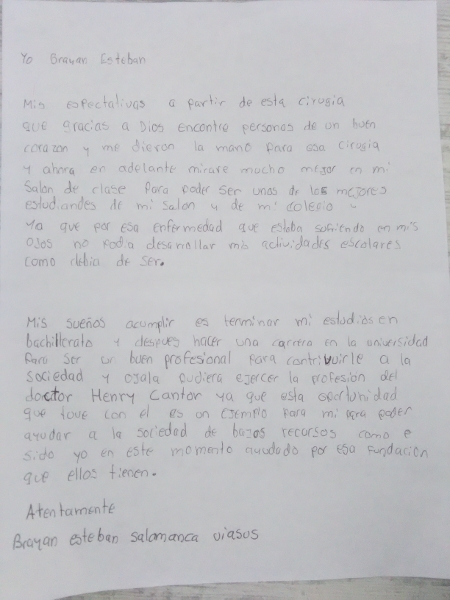 Yo Brayan Esteban
Mis espectativas a partir de esta cirugia
que gracias a Dios encontre personas de un buen
corazon y me dieron la mano para esa cirugia
y ahora en adelante mirare mucho mejor en mi
salon de clase para poder ser unos de los mejores
estudiandes de mi salon y de mi colegio
Ya que por esa enfermedad que estaba sufriendo en mis
ojos no podia desarrollar mis actividades escolares
como debia de ser.
Mis sueños acumplir es terminar mi estudios en
bachillerato y despues hacer una carrera en la universidad
para ser un buen profesional para contribuirle a la
sociedad y ojala pudiera ejercer la profesion del
doctor Henry Cantor ya que esta oportunidad
que tuve con el es un ejemplo para mi para poder
ayudar a la sociedad de bajos recursos como e
sido yo en este momento ayudado por esa fundacion
que ellos tienen.
Atentamente
Brayan esteban salamanca viasus